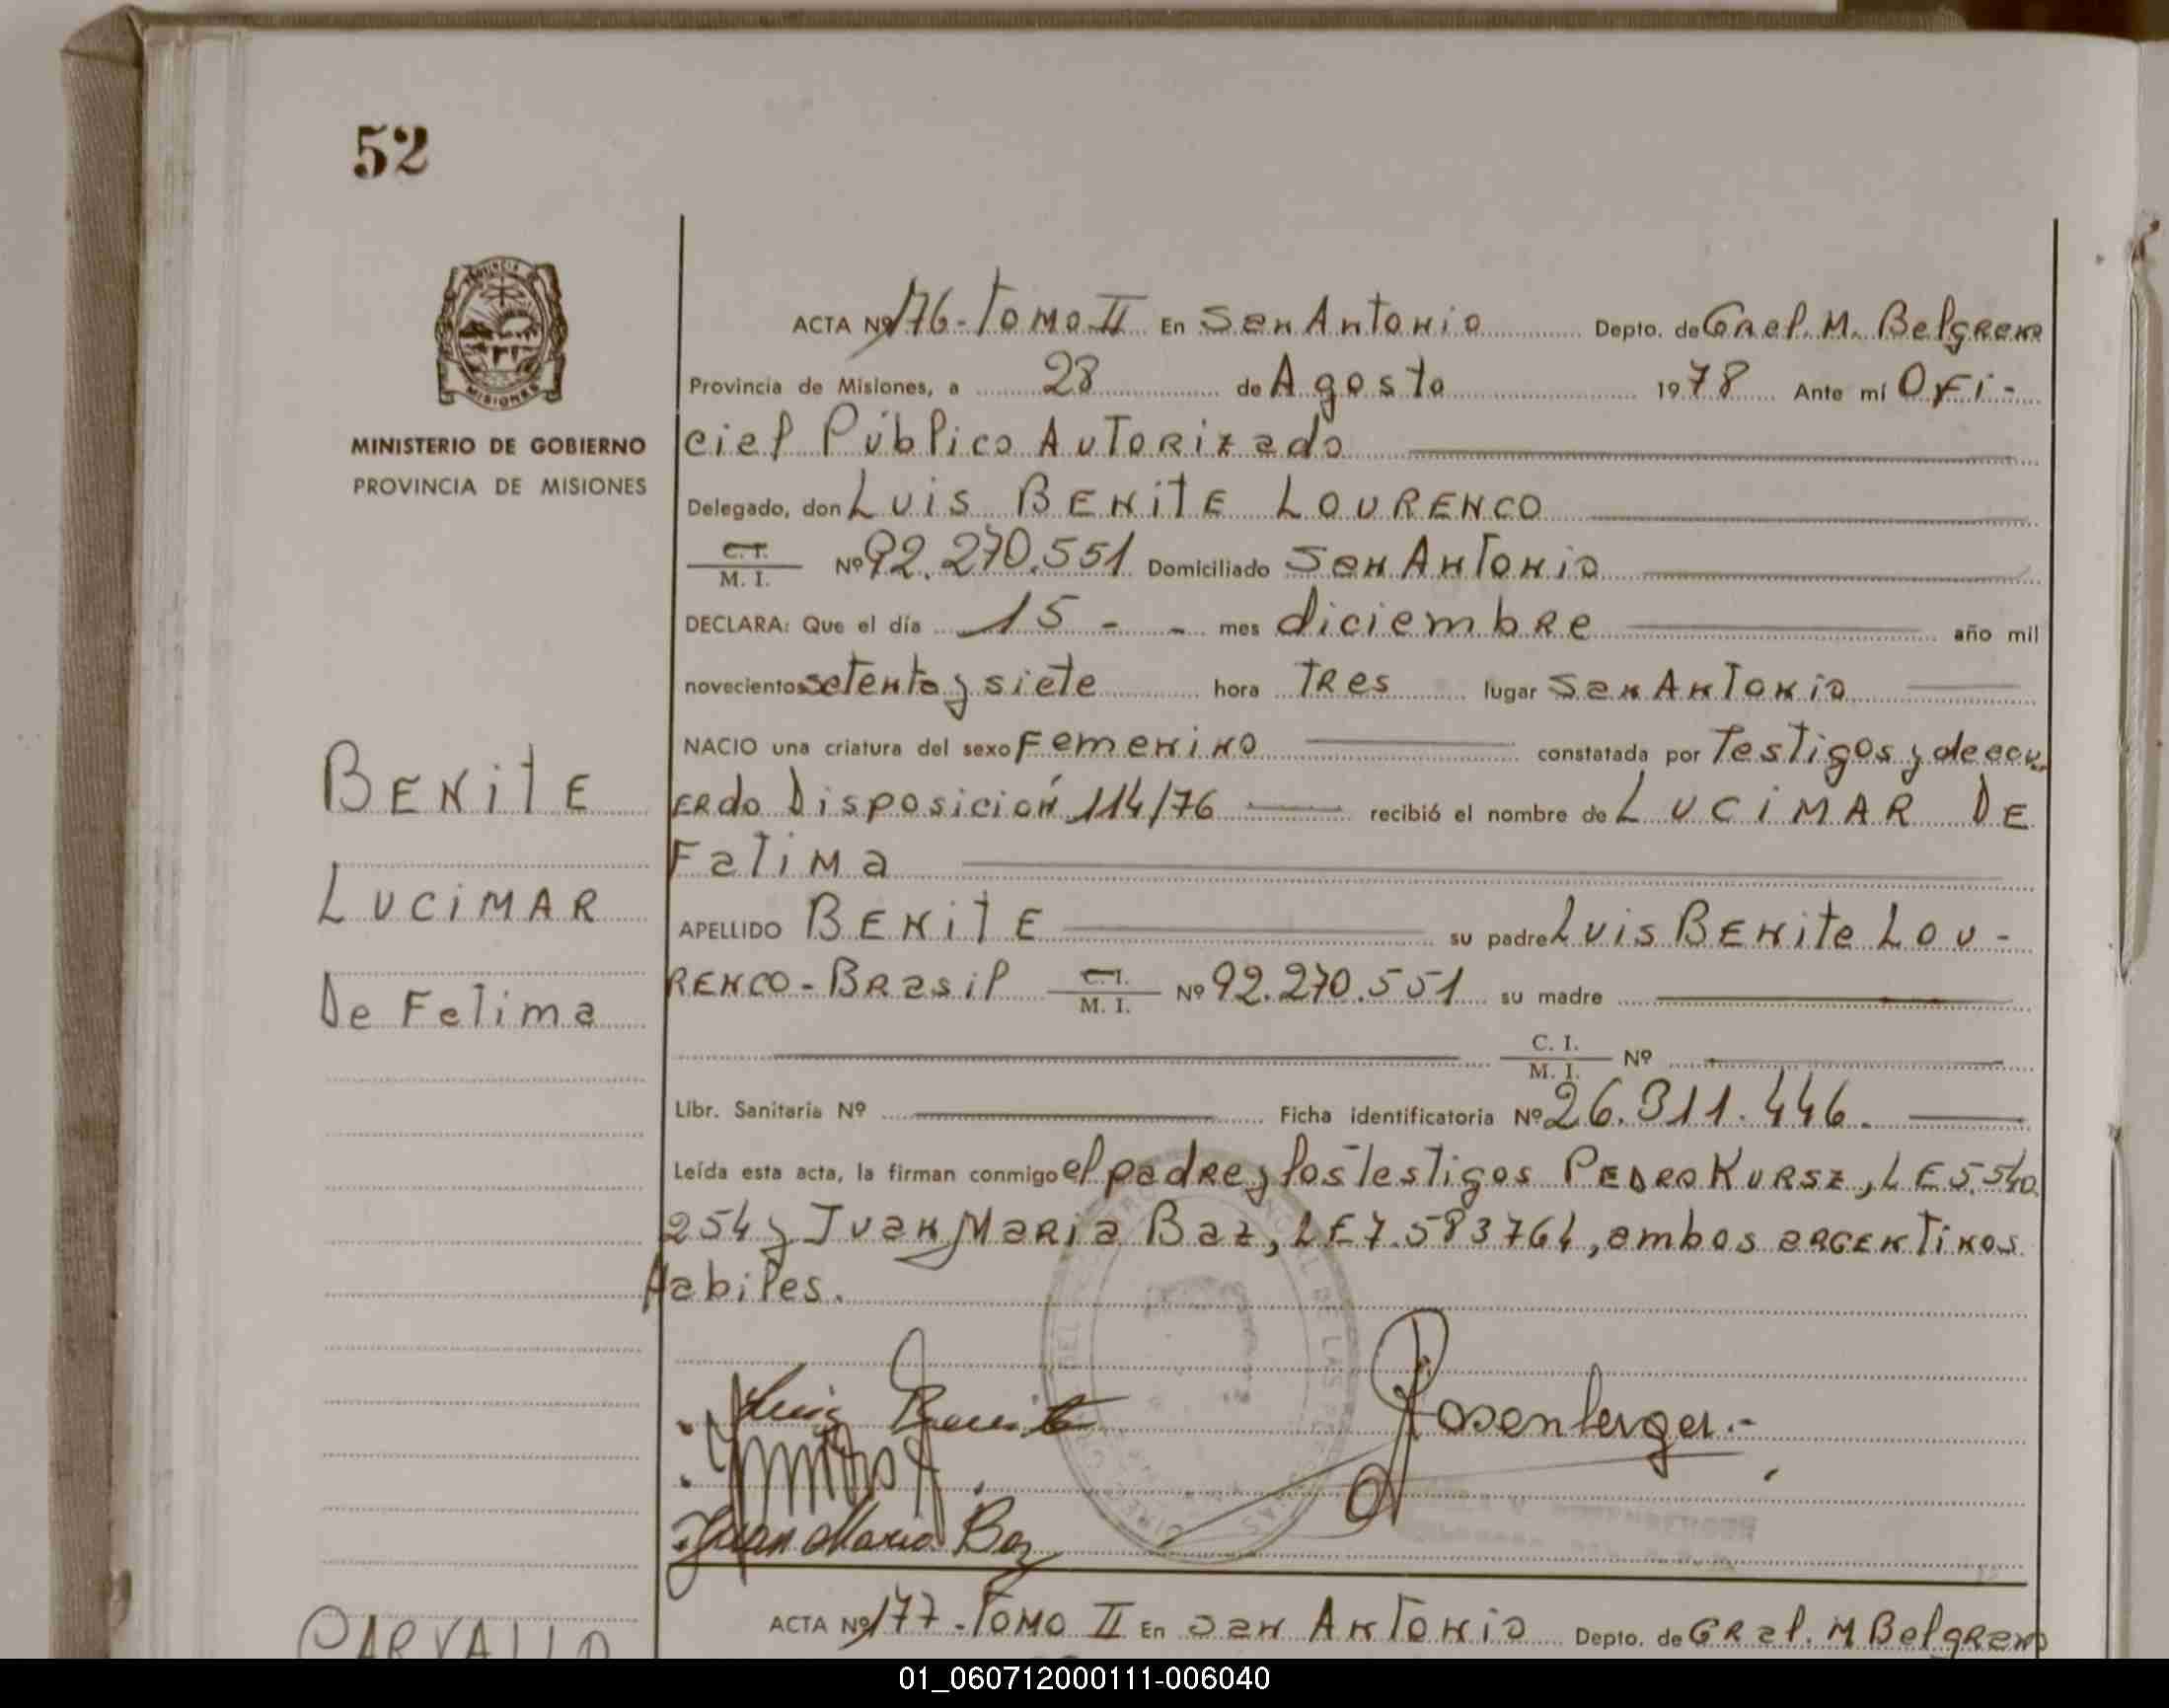 52
MINISTERIO DE GOBIERNO
PROVINCIA DE MISIONES
BENitE
LUCiMAR
De Fatima
CARVALLO
ACTA Nº 176-Tomo II En San Antonio Depto. de Gral. M. Belgrano
Provincia de Misiones, a 28 de Agosto 1978 Ante mí Ofi-
cial Público Autorizado
Delegado, don Luis BENitE LOURENCO
C.I. M. I. Nº 92.270.551 Domiciliado San Antonio
DECLARA: Que el día 15 - - mes diciembre año mil
novecientos setenta y siete hora tres lugar San Antonio
NACIO una criatura del sexo Femenino constatada por Testigos y de acu-
erdo Disposición 114/76 recibió el nombre de LUCiMAR DE
Fatima
APELLIDO BENitE su padre Luis BENite Lou-
RENCO-Brasil C.I. M. I. Nº 92.270.551 su madre
C. I. M. I. Nº
Libr. Sanitaria Nº Ficha identificatoria Nº 26.311.446.
Leída esta acta, la firman conmigo el padre y los testigos PEDRO KURSZ, LE 5.540.
254 y Juan Maria Baz, LE 7.583764, ambos argentinos
habiles.
Luis Benite
Rosenberger.-
Juan Maria Baz
ACTA Nº 177-Tomo II En San Antonio Depto. de Gral. M Belgrano
01_060712000111-006040